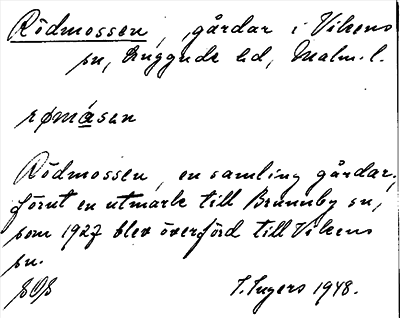 Rödmossen, gårdar i Vikens
sn, Luggude hd, Malm. l.
rømåsen
Rödmossen, en samling gårdar,
förut en utmark till Brunnby sn,
som 1927 blev överförd till Vikens
sn.
I. Ingers 1948.